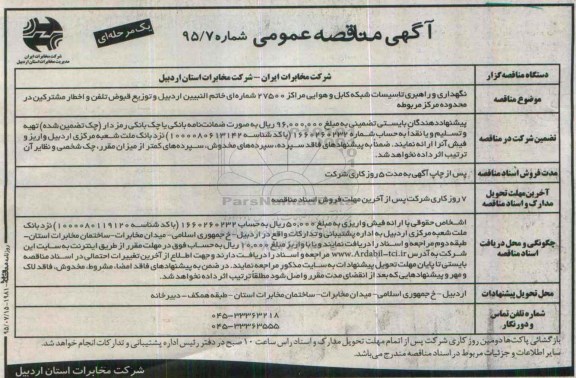 آگهی مناقصه عمومی شماره ۹۵/۷
یک مرحله‌ای
شرکت مخابرات ایران
مدیریت مخابرات استان اردبیل
دستگاه مناقصه گزار
شرکت مخابرات ایران – شرکت مخابرات استان اردبیل
موضوع مناقصه
نگهداری و راهبری تاسیسات شبکه کابل و هوایی مراکز ۲۷۵۰۰ شماره‌ای خاتم النبیین اردبیل و توزیع قبوض تلفن و اخطار مشترکین در
محدوده مرکز مربوطه
تضمین شرکت در مناقصه
پیشنهاددهندگان بایستی تضمینی به مبلغ ۹۶,۰۰۰,۰۰۰ ریال به صورت ضمانت‌نامه بانکی یا چک بانکی رمزدار (چک تضمین شده) تهیه
و تسلیم و یا نقداً به حساب شماره ۱۶۶۰۲۶۰۲۳۲ (با کد شناسه ۱۰۰۰۰۰۸۰۶۱۳۱۴۲) نزد بانک ملت شعبه مرکزی اردبیل واریز و
فیش آنرا ارائه نمایند. ضمناً به پیشنهادهای فاقد سپرده، سپرده‌های مخدوش، سپرده‌های کمتر از میزان مقرر، چک شخصی و نظایر آن
ترتیب اثر داده نخواهد شد.
مدت فروش اسناد مناقصه
پس از چاپ آگهی به مدت ۵ روز کاری شرکت
آخرین مهلت تحویل
مدارک و اسناد مناقصه
۷ روز کاری شرکت پس از آخرین مهلت فروش اسناد مناقصه
چگونگی و محل دریافت
اسناد مناقصه
اشخاص حقوقی با ارائه فیش واریزی به مبلغ ۵۰,۰۰۰ ریال به حساب ۱۶۶۰۲۶۰۲۳۲ (با کد شناسه ۱۰۰۰۰۰۸۰۱۱۹۱۲۰) نزد بانک
ملت شعبه مرکزی اردبیل به اداره پشتیبانی و تدارکات واقع در اردبیل – خ جمهوری اسلامی – میدان مخابرات – ساختمان مخابرات استان –
طبقه دوم مراجعه و اسناد را دریافت نمایند و یا با واریز مبلغ ۱۰,۰۰۰ ریال به حساب فوق در مهلت مقرر از طریق اینترنت به سایت این
شرکت به آدرس www.Ardabil-tci.ir مراجعه و اسناد را دریافت دارند و جهت اطلاع از آخرین تغییرات احتمالی در اسناد مناقصه
بایستی تا پایان مهلت تحویل پیشنهادات به سایت مذکور مراجعه نمایند. در ضمن به پیشنهادهای فاقد امضا، مشروط، مخدوش، فاقد لاک
و مهر و پیشنهادهایی که بعد از انقضای مدت مقرر واصل شود مطلقاً ترتیب اثر داده نخواهد شد.
محل تحویل پیشنهادات
اردبیل – خ جمهوری اسلامی – میدان مخابرات – ساختمان مخابرات استان – طبقه همکف – دبیرخانه
شماره تلفن تماس
و دورنگار
۰۴۵-۳۳۳۶۳۲۱۸
۰۴۵-۳۳۳۶۳۵۵۵
بازگشائی پاکت‌ها دومین روز کاری شرکت پس از اتمام مهلت تحویل مدارک و اسناد راس ساعت ۱۰ صبح در دفتر رئیس اداره پشتیبانی و تدارکات انجام خواهد شد.
سایر اطلاعات و جزئیات مربوط در اسناد مناقصه مندرج می‌باشد.
شرکت مخابرات استان اردبیل